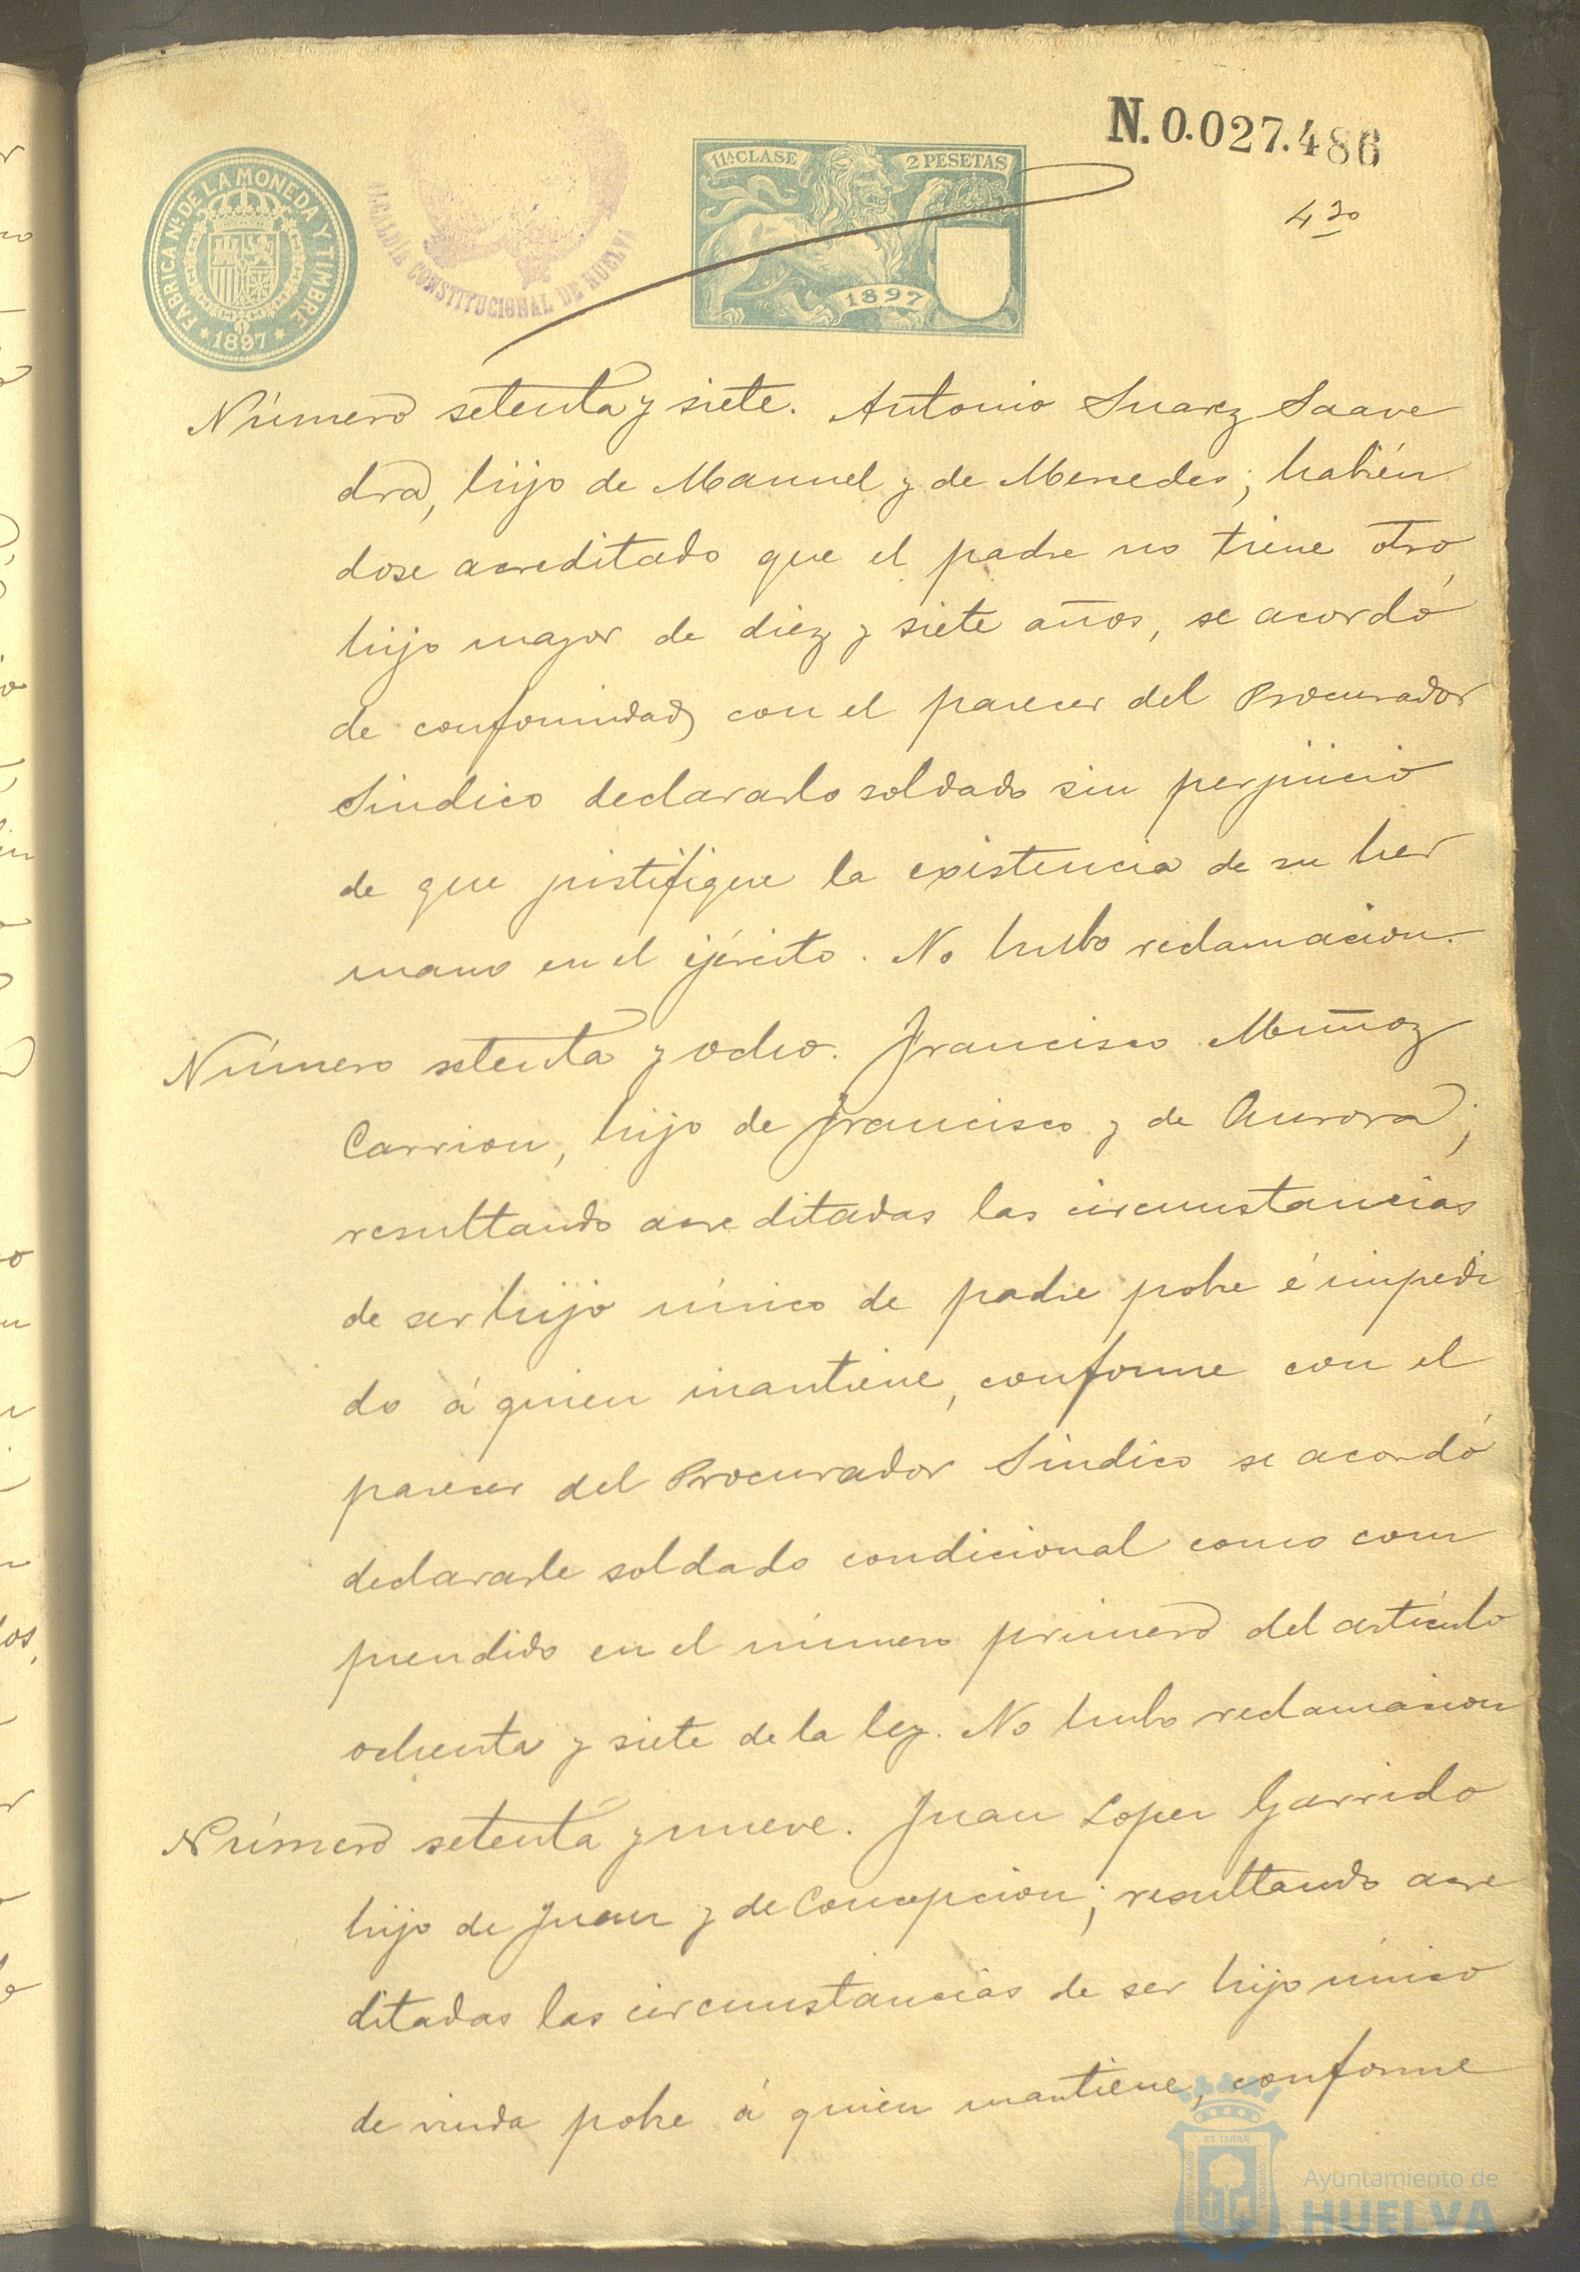 N. 0.027.486
11ª CLASE
2 PESETAS
1897
FABRICA Nl. DE LA MONEDA Y TIMBRE
* 1897 *
ALCALDÍA CONSTITUCIONAL DE HUELVA
Número setenta y siete. Antonio Suarez Saave
dra, hijo de Manuel y de Mercedes; habién
dose acreditado que el padre no tiene otro
hijo mayor de diez y siete años, se acordó
de conformidad con el parecer del Procurador
Sindico declararlo soldado sin perjuicio
de que justifique la existencia de su her
mano en el ejército. No hubo reclamacion.
Número setenta y ocho. Francisco Muñoz
Carrion, hijo de Francisco y de Aurora;
resultando acreditadas las circunstancias
de ser hijo único de padre pobre é impedi
do á quien mantiene, conforme con el
parecer del Procurador Sindico se acordó
declararle soldado condicional como com
prendido en el número primero del artículo
ochenta y siete de la ley. No hubo reclamacion
Número setenta y nueve. Juan Lopez Garrido
hijo de Juan y de Concepcion; resultando acre
ditadas las circunstancias de ser hijo único
de viuda pobre á quien mantiene, conforme
Ayuntamiento de
HUELVA